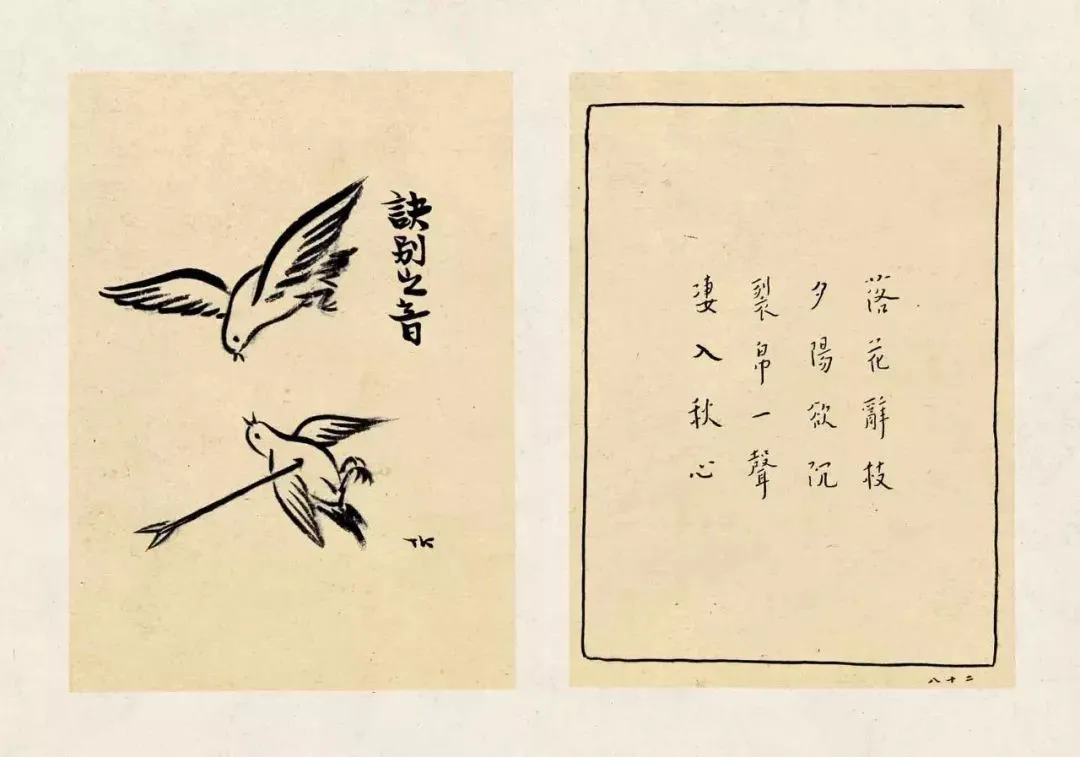 訣别之音
TK
落花辭枝
夕陽欲沉
裂帛一聲
凄入秋心
八十二